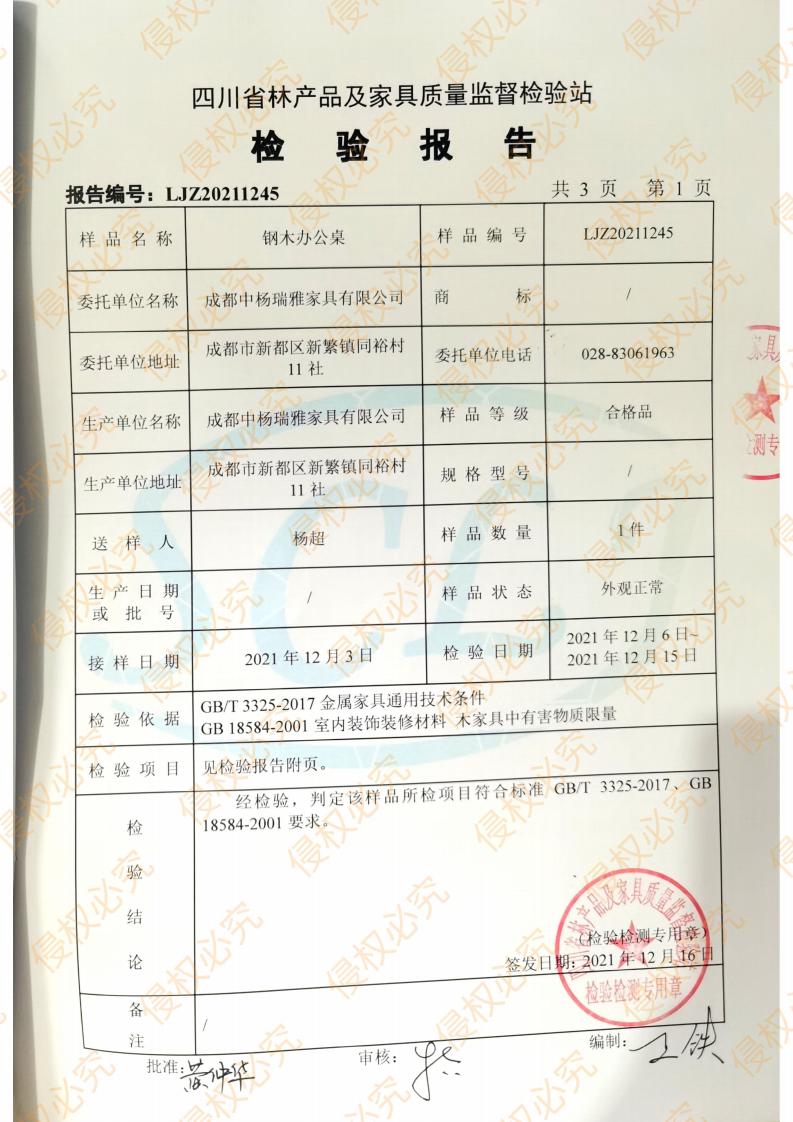 四川省林产品及家具质量监督检验站
检 验 报 告
报告编号：LJZ20211245
共 3 页 第 1 页
样品名称 钢木办公桌 样品编号 LJZ20211245
委托单位名称 成都中杨瑞雅家具有限公司 商标 /
委托单位地址 成都市新都区新繁镇同裕村
11 社
委托单位电话 028-83061963
生产单位名称 成都中杨瑞雅家具有限公司 样品等级 合格品
生产单位地址 成都市新都区新繁镇同裕村
11 社
规格型号 /
送样人 杨超 样品数量 1 件
生产日期
或批号
/ 样品状态 外观正常
接样日期 2021 年 12 月 3 日 检验日期 2021 年 12 月 6 日~
2021 年 12 月 15 日
检验依据 GB/T 3325-2017 金属家具通用技术条件
GB 18584-2001 室内装饰装修材料 木家具中有害物质限量
检验项目 见检验报告附页。
检
验
结
论
经检验，判定该样品所检项目符合标准 GB/T 3325-2017、GB
18584-2001 要求。
（检验检测专用章）
签发日期：2021 年 12 月 16 日
四川省林产品及家具质量监督检验站
检验检测专用章
备
注
/
批准：
审核：
编制：
家具
测专
侵权必究